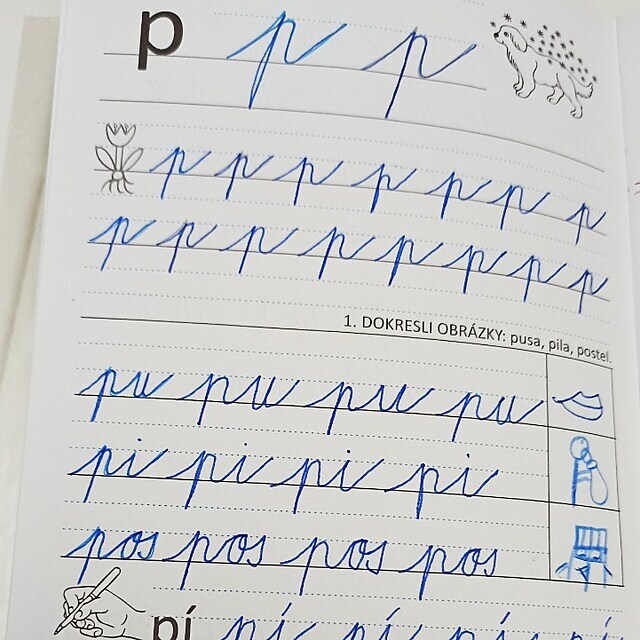 p p p
p p p p p p p
p p p p p p p p
1. DOKRESLI OBRÁZKY: pusa, pila, postel.
pu pu pu pu
pi pi pi pi
pos pos pos pos
pí pí pí pí pí